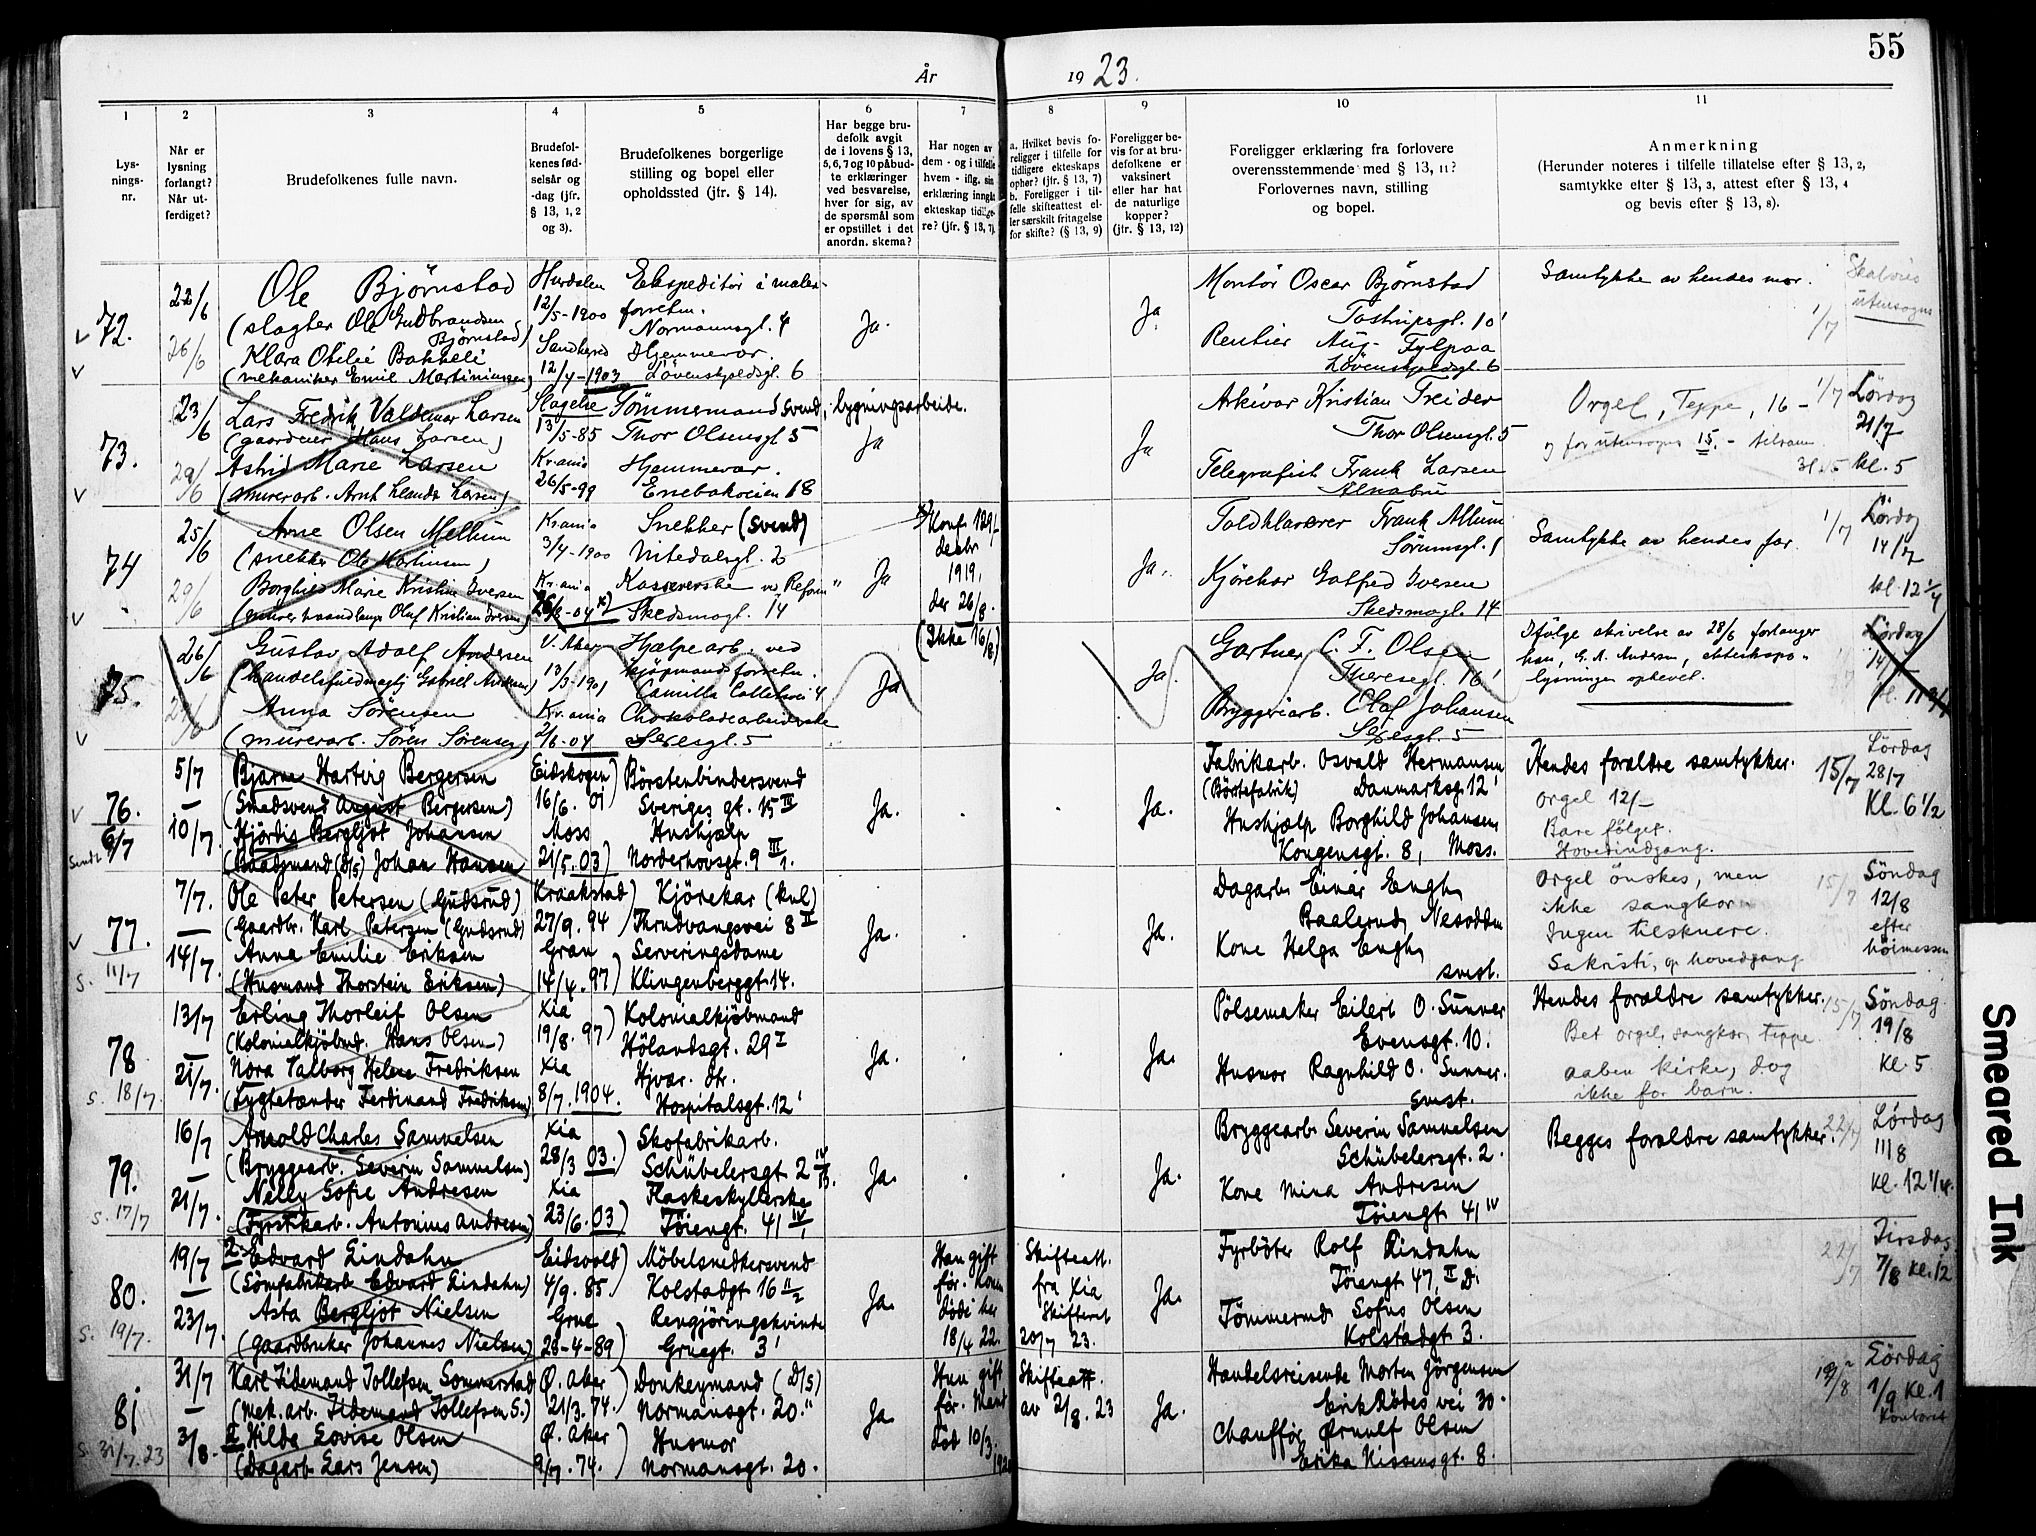 55
År 1923.
1 2 3 4 5 6 7 8 9 10 11
Lys-
nings-
nr.
Når er
lysning
forlangt?
Når ut-
ferdiget?
Brudefolkenes fulle navn.
Brudefol-
kenes fød-
selsår og
-dag (jfr.
§ 13, 1, 2
og 3).
Brudefolkenes borgerlige
stilling og bopel eller
opholdssted (jfr. § 14).
Har begge bru-
defolk avgit
de i lovens § 13,
5, 6, 7 og 10 påbud-
te erklæringer
ved besvarelse,
hver for sig, av
de spørsmål som
er opstillet i det
anordn. skema?
Har nogen av
dem - og i tilfelle
hvem - iflg. sin
erklæring inngåt
ekteskap tidlige-
re? (jfr. § 13, 7).
a. Hvilket bevis fo-
religger i tilfelle for
tidligere ekteskaps
opher? (jfr. § 13, 7)
b. Foreligger i til-
felle skifteattest el-
ler særskilt fritagelse
for skifte? (§ 13, 9)
Foreligger be-
vis for at bru-
defolkene er
vaksinert
eller har hat
de naturlige
kopper?
(jfr. § 13, 12)
Foreligger erklæring fra forlovere
overensstemmende med § 13, 11?
Forlovernes navn, stilling
og bopel.
Anmerkning
(Herunder noteres i tilfelle tillatelse efter § 13, 2,
samtykke efter § 13, 3, attest efter § 13, 4
og bevis efter § 13, 8).
72.
22/6
26/6
Ole Bjørnstad
(slagter Ole Gudbrandsen
Bjørnstad)
Klara Otilie Bakkeli
(mekaniker Emil Martiniussen)
Hurdalen
12/5-1900
12/4-1903
Ekspeditør i maler-
forretn.
Normannsgt. 4
Hjemmevær.
Løvenskjoldsgt. 6
Ja.
Ja.
Montør Oscar Bjørnstad
Tostrupsgt. 10
Rentier Aug.
Løvenskjoldsgt. 6
Samtykke av hendes mor.
1/7
utensogns
73.
23/6
29/6
Lars Fredrik Valdemar Larsen
(gaardeier Hans Larsen)
Astrid Marie Larsen
(murerarb. Arnt Larsen)
Slagelse
13/5-85
Kr.ania
26/5-99
Tømmermandsvend, bygningsarbeide.
Thor Olsensgt. 5
Hjemmevær.
Enebakveien 18
Ja
Ja
Arkivar Kristian Treider
Thor Olsensgt. 5
Telegrafist Frank Larsen
Alnabru
Orgel, Teppe, 16 -
og for utensogns 15.- tilsam.
1/7
Lørdag
21/7
kl. 5
74
25/6
29/6
Arne Olsen Mellum
(snekker Ole Martinsen)
Borghild Marie Kristine Iversen
(murerhaandlanger Oluf Kristian Iversen)
Kr.ania
3/4-1900
Kr.ania
26/8-04
Snekker (svend)
Nitedalsgt. 2
Kassererske ved "Reform"
Skedsmogt. 14
Ja
Konf.
1919,
der 26/8.
(Ikke 16/8)
Ja.
Toldklarerer Frank Allum
Sørumsgt. 1
Kjørekar Gotfred Iversen
Skedsmogt. 14
Samtykke av hendes far.
1/7
Lørdag
14/7
kl. 12 1/4
75.
26/6
Gustav Adolf Andersen
(handelsfuldmægtig Gabriel Andersen)
Anna Sørensen
(murerarb. Søren Sørensen)
V. Aker
13/3-1901
Kr.ania
2/6-04
Hjælpearb. ved
kjøpmandsforretn.
Camilla Colletsvei 4
Chokoladearbeiderske
Sexesgt. 5
Ja
Ja.
Gartner C. F. Olsen
Theresegt. 16
Bryggeriarb. Olaf Johansen
Sexesgt. 5
Ifølge skrivelse av 28/6 forlanger
han, G. A. Andersen, ekteskaps-
lysningen ophevet.
Lørdag
14/7
76.
6/7
Sendt
5/7
10/7
Bjarne Hartvig Bergersen
(Smedsvend August Bergersen)
Hjördis Bergljot Johansen
(Baadsmand (D/S) Johan Hansen
Eidskogen)
16/6. 01
Moss
21/5. 03)
Börstenbindersvend
Sveriges gt. 15 III
Hushjælp
Norderhovsgt. 9 III
Ja.
Ja.
Fabrikarb. Osvald Hermansen
(Börstefabrik) Danmarksg. 12
Hushjælp Borghild Johansen
Kongensgt. 8, Moss.
Hendes forældre samtykker.
Orgel 12/-
Bare følget.
Hovedindgang.
15/7
Lördag
28/7
Kl. 6 1/2
77.
11/7
S.
7/7.
14/7
Ole Peter Petersen (Gudsrud)
(Gaardbr. Karl Petersen (Gudsrud)
Anna Emilie Eriksen
(Husmand Thorstein Eriksen)
Kraakstad)
27/9. 94
Gran
14/4. 97)
Kjörekar (kul)
Thrudvangsvei 8 II
Serveringsdame
Klingenberggt. 14.
Ja.
Ja.
Dagarb. Einar Engh
Baalerud, Nesodden
Kone Helga Engh,
smst.
Orgel önskes, men
ikke sangkor
Ingen tilskuere.
Sakristi, op hovedgang
15/7
Söndag
12/8
efter
höimessen
78
S. 18/7.
13/7
21/7.
Erling Thorleif Olsen
(Kolonialkjöbmd. Hans Olsen)
Nora Valborg Helene Fredriksen
(Lygtetænder Ferdinand Fredriksen)
Kia
19/8. 97)
Kia
8/7. 1904.
Kolonialkjöbmand
Hölandsgt. 29 I
Hjvær. dtr.
Hospitalsgt. 12
Ja.
Ja.
Pölsemaker Eilert O. Sunner
Evensgt. 10.
Husmor Ragnhild O. Sunner.
smst.
Hendes forældre samtykker.
Bet orgel, sangkor, teppe
aaben kirke, dog
ikke for barn.
15/7
Söndag
19/8
Kl. 5
79.
S. 17/7
16/7
21/7.
Arnold Charles Samuelsen
(Bryggearb. Severin Samuelsen)
Nelly Sofie Andresen
(Fyrstikarb. Antonius Andresen)
Kia
28/3 03.)
Kia
23/6. 03)
Skofabrikarb.
Schübelersgt. 2
Flaskeskyllerske
Töiengt. 41 IV
Ja.
Ja.
Bryggearb. Severin Samuelsen
Schübelersgt. 2.
Kone Mina Andresen
Töiengt 41 IV
Begges forældre samtykker.
22/7
Lördag
11/8
Kl. 12 1/4.
80.
S. 19/7.
19/7
23/7.
2. Edvard Lindahn
(Sömfabrikarb. Edvard Lindahn)
Asta Bergljot Nielsen
(Gaardbruker Johannes Nielsen)
Eidsvold)
4/9. 85.
Grue
28-4-89)
Möbelsnedkersvend
Kolstadgt 16
Rengjöringskvinde
Gruegt. 3
Ja.
Han gift
för. Konen
döde her
18/4 22.
Skifteatt.
fra Kia
Skifteret
20/7 23.
Ja.
Fyrböter Rolf Lindahn
Töiengt 47, II D.
Tömmermd Sofus Olsen
Kolstadgt 3.
22/7
Tirsdag
7/8 Kl. 12
81
S. 31/7. 23
31/7
3/8.
Karl Tidemand Tollefsen Sommerstad
(Mek. arb. Tidemand Tollefsen S.)
II Hilda Lovise Olsen
(Dagarb. Lars Jensen)
Ø. Aker
21/3. 74.
Ø. Aker
9/7. 74.
Donkeymand (D/S)
Normansgt. 20."
Husmor
Normansgt. 20.
Ja.
Hun gift
för. Mand
död 10/3
Skifteatt.
av 2/8. 23
Ja.
Handelsreisende Morten Jörgensen
Erik Rödes vei 30.
Chaufför Ørnulf Olsen
Erika Nissensgt. 8.
Lördag
1/9 Kl. 1
Kontoret
Smeared Ink